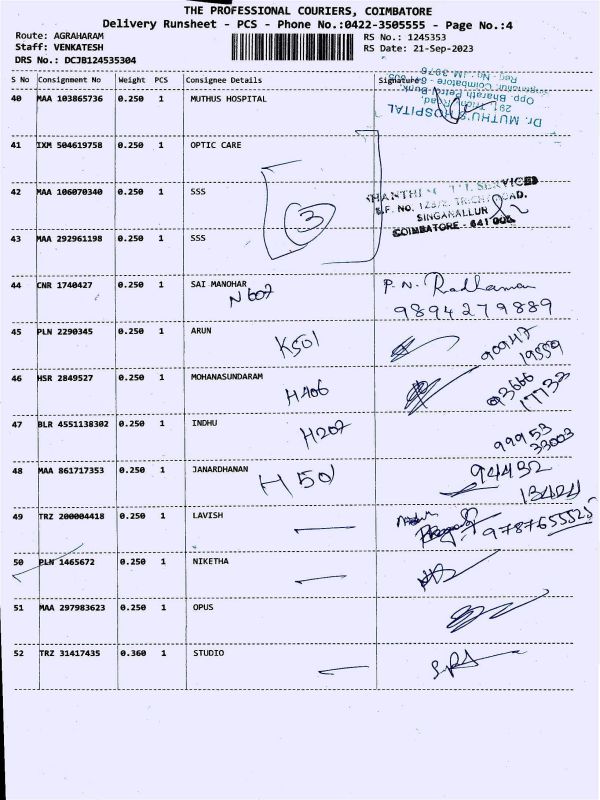 THE PROFESSIONAL COURIERS, COIMBATORE
Delivery Runsheet - PCS - Phone No.:0422-3505555 - Page No.:4
Route: AGRAHARAM RS No.: 1245353
Staff: VENKATESH RS Date: 21-Sep-2023
DRS No.: DCJB124535304
S No Consignment No Weight PCS Consignee Details Signature
40 MAA 103865736 0.250 1 MUTHUS HOSPITAL
Dr. MUTHU'S HOSPITAL
291, Trichy Road,
Opp. Bharath Petrol Bunk,
41 IXM 504619758 0.250 1 OPTIC CARE
42 MAA 106070340 0.250 1 SSS
3
SINGANALLUR
COIMBATORE - 641 005
43 MAA 292961198 0.250 1 SSS
44 CNR 1740427 0.250 1 SAI MANOHAR P. N. Radhamani
N 607 9894279889
45 PLN 2290345 0.250 1 ARUN
K501 90947
19559
46 HSR 2849527 0.250 1 MOHANASUNDARAM
H406 93666
17732
47 BLR 4551138302 0.250 1 INDHU
H207 99953
33003
48 MAA 861717353 0.250 1 JANARDHANAN
H 501 94432
13424
49 TRZ 200004418 0.250 1 LAVISH
9787655525
50 PLN 1465672 0.250 1 NIKETHA
51 MAA 297983623 0.250 1 OPUS
52 TRZ 31417435 0.360 1 STUDIO